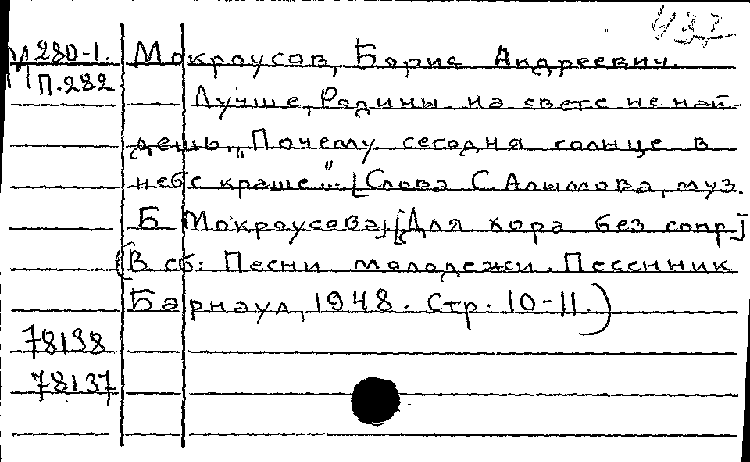 432
М280-1. Мокроусов, Борис Андреевич.
П.282
Лучше Родины на свете не най
дешь. „Почему сегодня солнце в
небе краше"... [Слова С. Алымова, муз.
Б Мокроусова] [Для хора без сопр]
(В сб: Песни молодежи. Песенник
Барнаул, 1948. Стр. 10-11.)
78138
78137